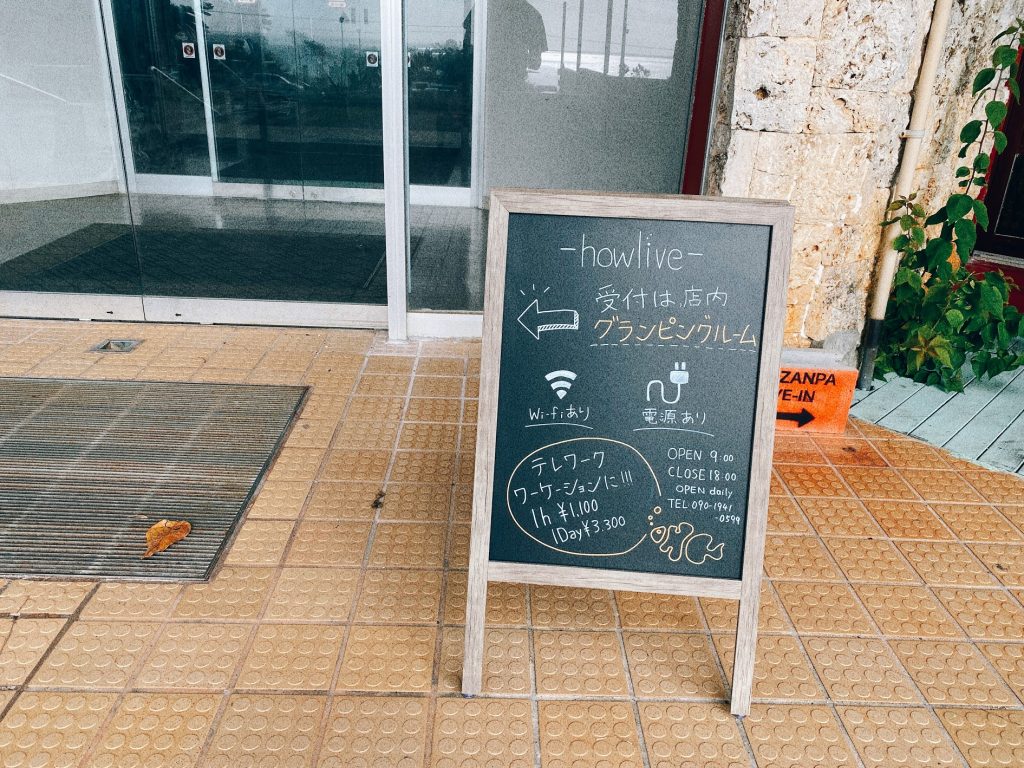 -howlive-
受付は、店内
グランピングルーム
Wi-fiあり
電源あり
テレワーク
ワーケーションに!!!
1h ¥1,100
1Day ¥3,300
OPEN 9:00
CLOSE 18:00
OPEN daily
TEL 090-1941
-0599
ZANPA
VE-IN